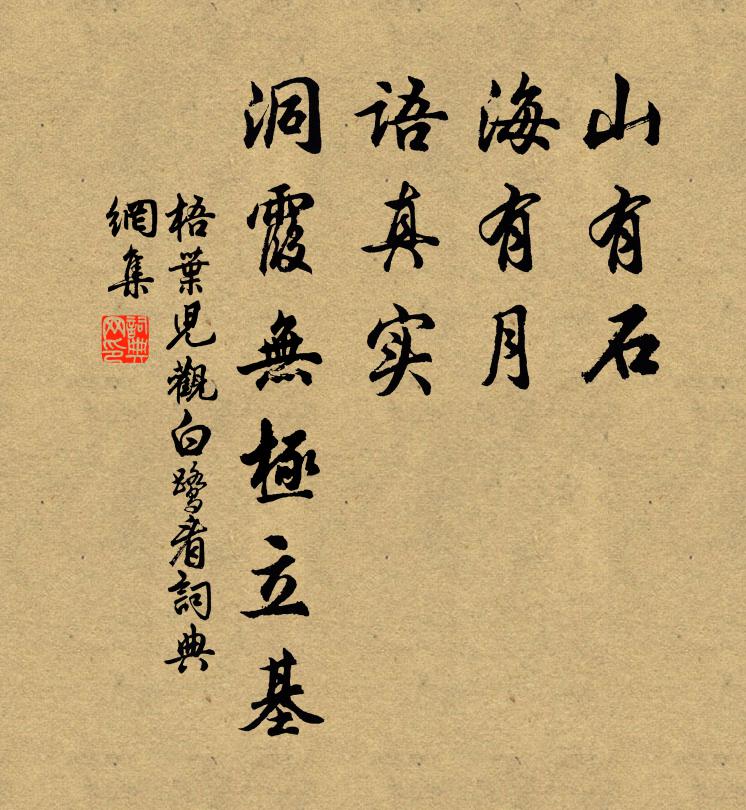 山有石
海有月
語真实
洞霞無極立基
梧葉児觀白鹭者詞典
網集
詞典网印